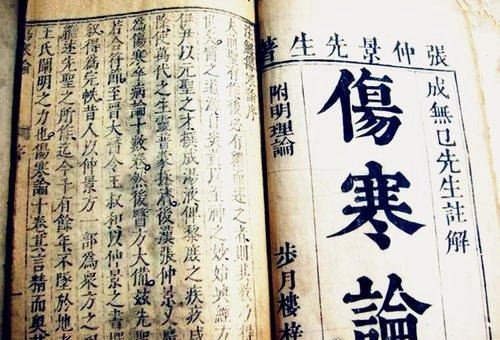 張仲景先生著
成無已先生註解
傷寒論
附明理論
步月樓梓
註解傷寒論序
夫前聖有作後必有繼而述之者則其教乃得
醫之道源自炎黃以至神之妙始興經方
伊尹以元聖之才撰成湯液俾黎庶之疾疚咸
除使萬代之生靈普蒙拯濟後漢張仲景又廣
為傷寒卒病論十數卷然後醫方大備茲先聖
若合符節至晉太醫令王叔和以仲景之書撰
敘得為完帙昔人以仲景方一部為眾方之
羅述先聖之所能迄今千有餘年不墜於地者
王氏闡明之力也傷寒論十卷其言精而奧
傷寒論 序